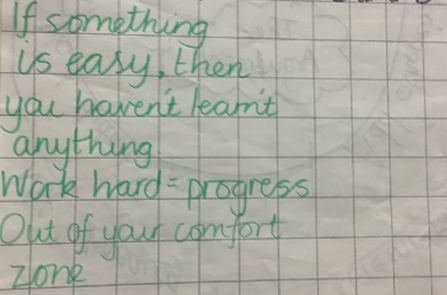 If something
is easy, then
you haven't learn't
anything
Work hard = progress
Out of your comfort
zone